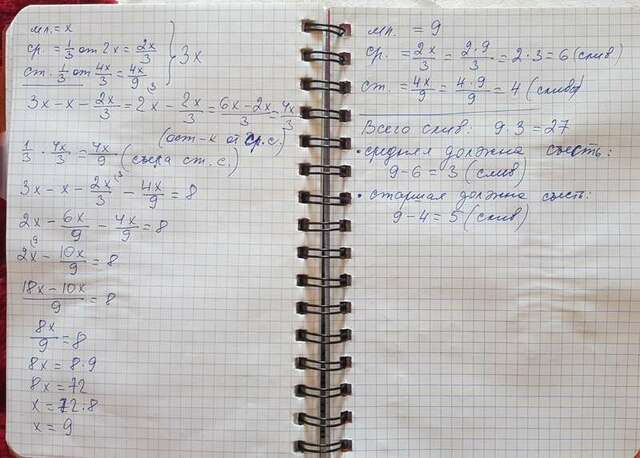 мл. = x
ср. = 1/3 от 2x = 2x/3
ст. 1/3 от 4x/3 = 4x/9 } 3x
3x - x - 2x/3 = 2x - 2x/3 = 6x-2x/3 = 4x/3
(ост-к от ср. с.)
1/3 · 4x/3 = 4x/9 (съела ст. с)
3x - x - 2x/3 - 4x/9 = 8
2x - 6x/9 - 4x/9 = 8
2x - 10x/9 = 8
18x-10x/9 = 8
8x/9 = 8
8x = 8·9
8x = 72
x = 72:8
x = 9
мл. = 9
ср. = 2x/3 = 2·9/3 = 2·3 = 6 (слив)
ст. = 4x/9 = 4·9/9 = 4 (сливы)
Всего слив: 9·3 = 27
• средняя должна съесть:
9-6 = 3 (слив)
• старшая должна съесть:
9-4 = 5 (слив)